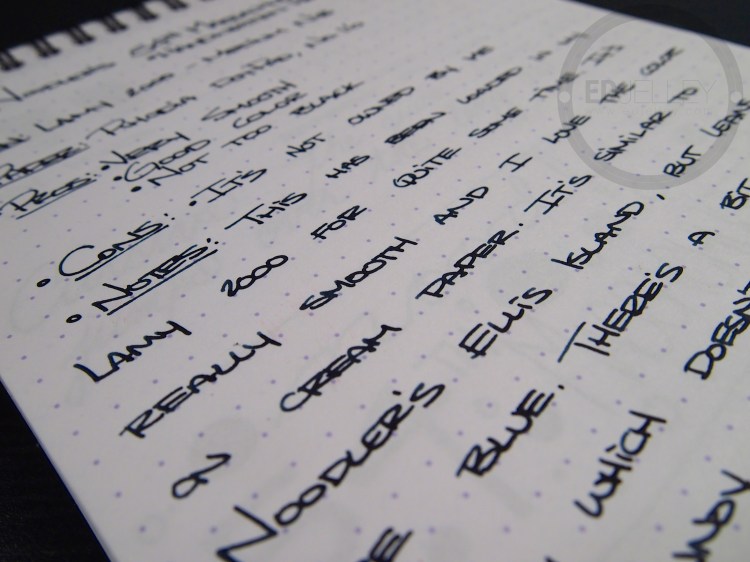 LAMY 2000 - MEDIUM NIB
PAPER: RHODIA DOTPAD, NO. 16
PROS: • VERY SMOOTH
• GOOD COLOR
• NOT TOO BLACK
• CONS: • IT'S NOT OWNED BY ME
• NOTES: THIS HAS BEEN LOADED IN MY
LAMY 2000 FOR QUITE SOME TIME. IT'S
REALLY SMOOTH AND I LOVE THE COLOR
ON CREAM PAPER. IT'S SIMILAR TO
NOODLER'S ELLIS ISLAND, BUT LEANS
BLUE. THERE'S A BIT
WHICH DOESN'T
ED JELLEY